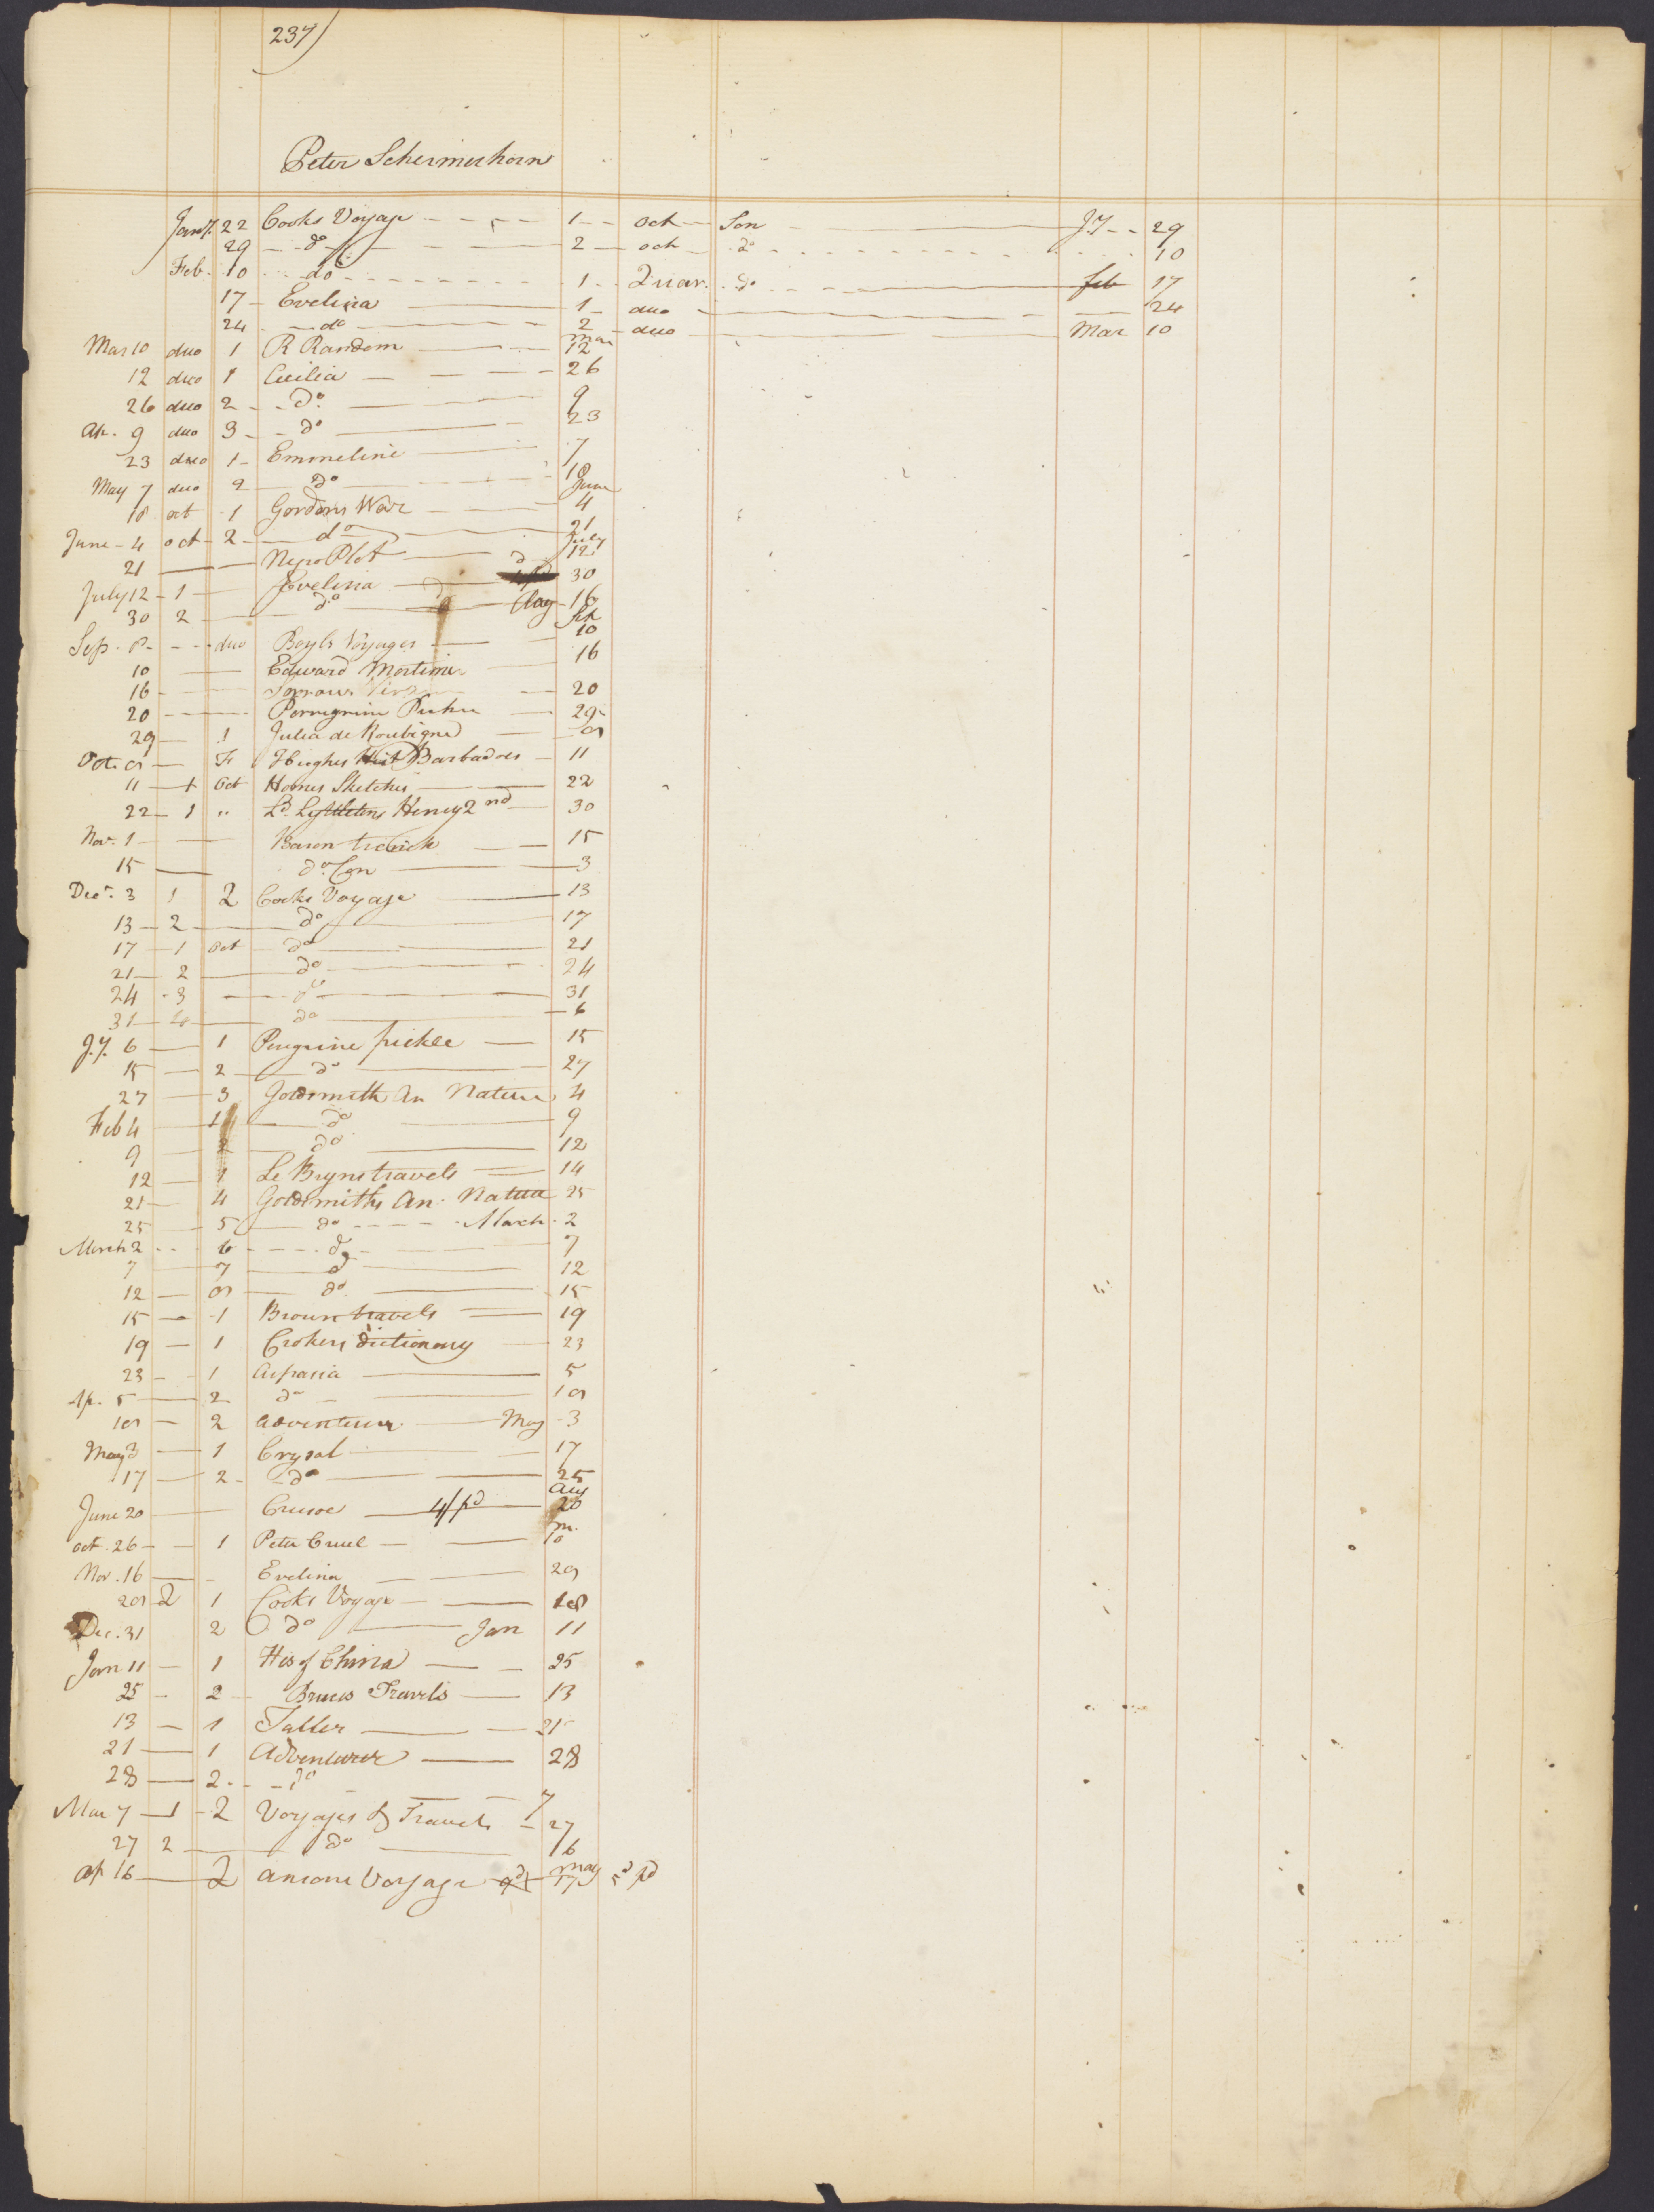 237)
Peter Schermerhorn
Jany. 22 Cooks Voyage 1 Oct Son J.y 29
29 do 2 och do 10
Feb. 10 do 1 Quar. do feb 17
17 Evelina 1 duo 24
24 do 2 duo Mar 10
Mar 10 duo 1 R Random Mar 12
12 duo 1 Cicilia 26
26 duo 2 do 9
Ap. 9 duo 3 do 23
23 duo 1 Emmeline 7
May 7 duo 2 do 18
18 oct 1 Gordons War June 4
June 4 oct 2 do 21
21 Negro Plot July 12
July 12 1 Evelina 30
30 2 do Aug 16
Sep. 8 duo Boyls Voyages Sep 10
10 Edward Mortimer 16
16 20
20 Perregrine Pickle 29
29 1 Julia de Roubigné 8
Oct. 8 Fo Hughes Hist Barbadoes 11
11 1 Oct Homes Sketches 22
22 1 " Ld. Lyttletons Henry 2nd 30
Nov. 1 Baron trenck 15
15 do. Con 3
Decr. 3 1 2 Cooks Voyage 13
13 2 do 17
17 1 Oct do 21
21 2 do 24
24 3 do 31
31 4 do 6
J.y. 6 1 Peregrine pickle 15
15 2 do 27
27 3 Goldsmith An Nature 4
Feb 4 do 9
9 2 do 12
12 1 Le Bryns travels 14
21 4 Goldsmiths An. Nature 25
25 5 do March 2
March 2 6 do 7
7 7 do 12
12 8 do 15
15 1 Brown travels 19
19 1 Crokers dictionary 23
23 1 Aspasia 5
Ap. 5 2 do 18
18 2 adventurer May 3
May 3 1 Crysal 17
17 2 do 25
June 20 Crusoe 4/pd Aug 20
oct. 26 1 Peter Cruel 10
Nov. 16 Evelina 28
28 2 1 Cooks Voyage 18
Dec. 31 2 do Jan 11
Jan 11 1 His of China 25
25 2 Bruces Travels 13
13 1 Tatler 21
21 1 Adventurer 28
28 2 do 7
Mar 7 1 2 Voyages & Travels 27
27 2 do 16
Ap 16 2 Ansons Voyage May 17 5d pd